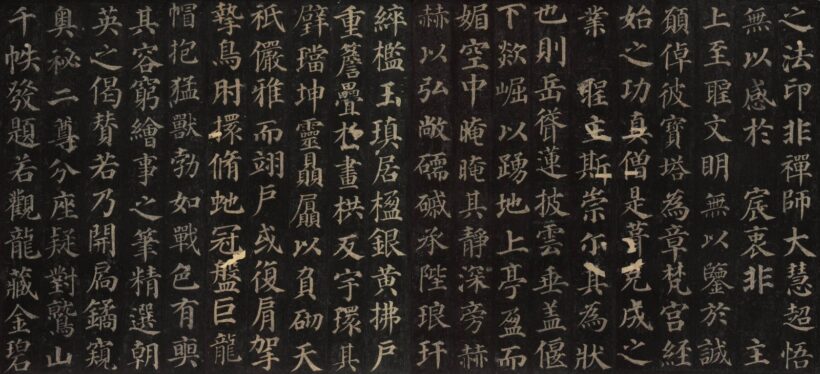 之法印非禪師大慧超悟
無以感於宸衷非主
上至聖文明無以鑒於誠
願倬彼寶塔為章梵宮經
始之功真僧是葺克成之
業聖主斯崇爾其為狀
也則岳聳蓮披雲垂蓋偃
下欻崛以踴地上亭盈而
媚空中晻晻其靜深旁赫
赫以弘敞礝磩承陛琅玕
綷檻玉瑱居楹銀黃拂戶
重簷疊於畫栱反宇環其
壁璫坤靈贔屭以負砌天
祇儼雅而翊戶或復肩拏
摯鳥肘擐脩蛇冠盤巨龍
帽抱猛獸勃如戰色有奭
其容窮繪事之筆精選朝
英之偈贊若乃開扃鐍窺
奧祕二尊分座疑對鷲山
千帙發題若觀龍藏金碧